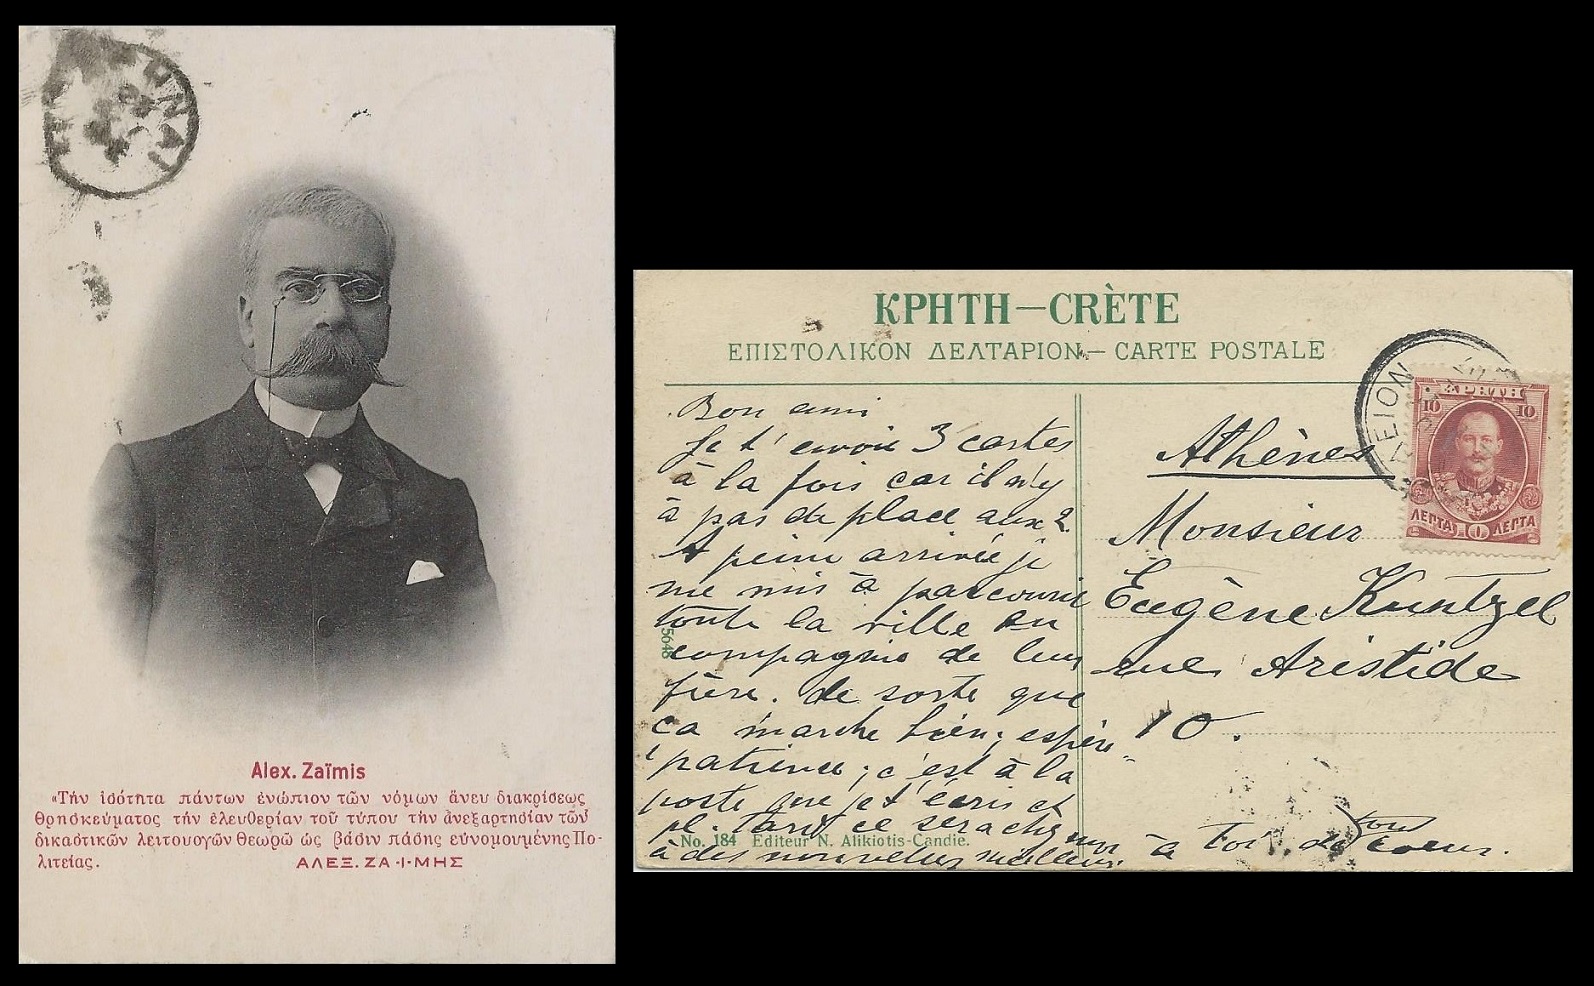 ΑΘΗΝΑΙ
Alex. Zaïmis
«Τὴν ἰσότητα πάντων ἐνώπιον τῶν νόμων ἄνευ διακρίσεως
θρησκεύματος τὴν ἐλευθερίαν τοῦ τύπου τὴν ἀνεξαρτησίαν τῶν
δικαστικῶν λειτουογῶν θεωρῶ ὡς βάσιν πάσης εὐνομουμένης Πο-
λιτείας.
ΑΛΕΞ. ΖΑ-Ϊ-ΜΗΣ
ΚΡΗΤΗ—CRÈTE
ΕΠΙΣΤΟΛΙΚΟΝ ΔΕΛΤΑΡΙΟΝ.— CARTE POSTALE
Bon ami
Je t'envoie 3 cartes
à la fois car il n'y
à pas de place aux 2.
A peine arrivée je
me mis à parcourir
toute la ville en
compagnie de
frère. de sorte que
ça marche bien;
patience; c'est à la
poste que je t'écris et
pl. tard ce sera
à des nouvelles
5648
No. 184 Editeur N. Alikiotis-Candie.
ΚΡΗΤΗ
10 10
ΛΕΠΤΑ 10 ΛΕΠΤΑ
Athènes
Monsieur
Eugène Kuntzel
rue Aristide
10.
à toi de tout
coeur.